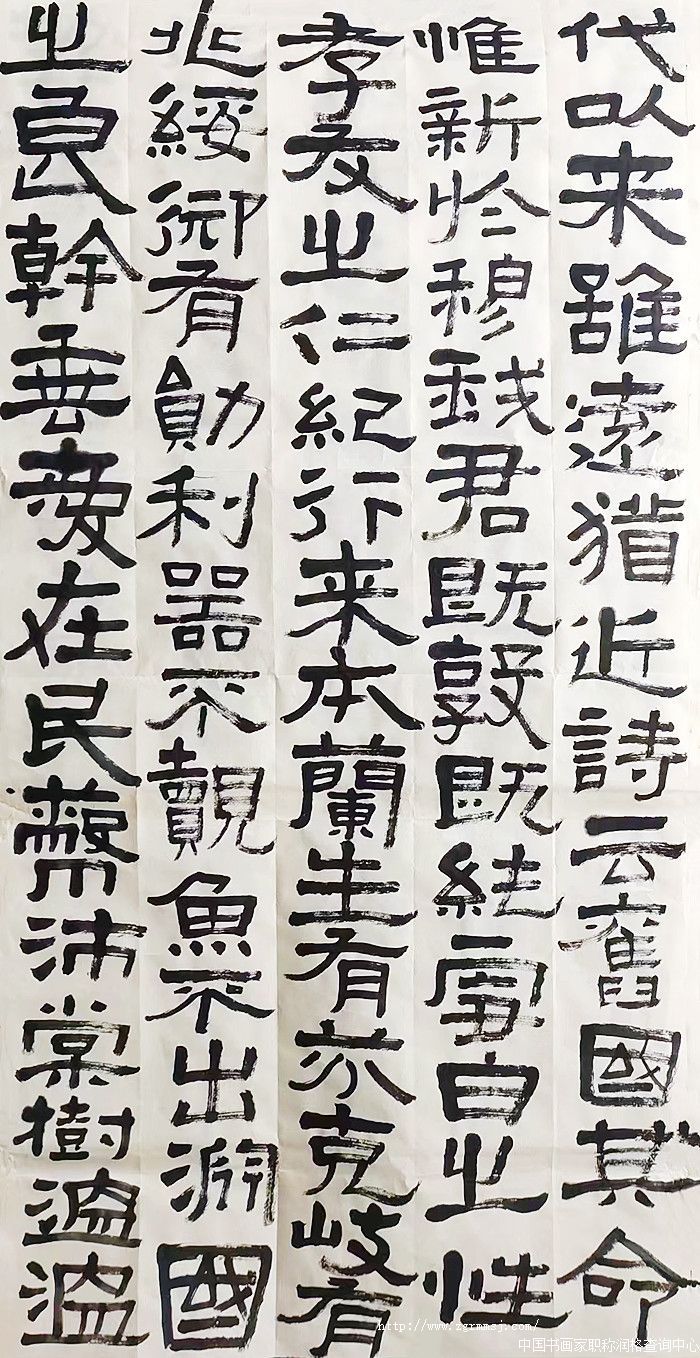 代以来雖遠猶近詩云舊國其命
惟新於穆我君既敦既純雪白之性
孝友之仁紀行来本蘭生有芬克岐有
兆綏御有勛利器不覿魚不出淵國
之良幹垂愛在民蔽沛棠樹溫溫
http://www.zgrmmsj.com/
中国书画家职称润格查询中心